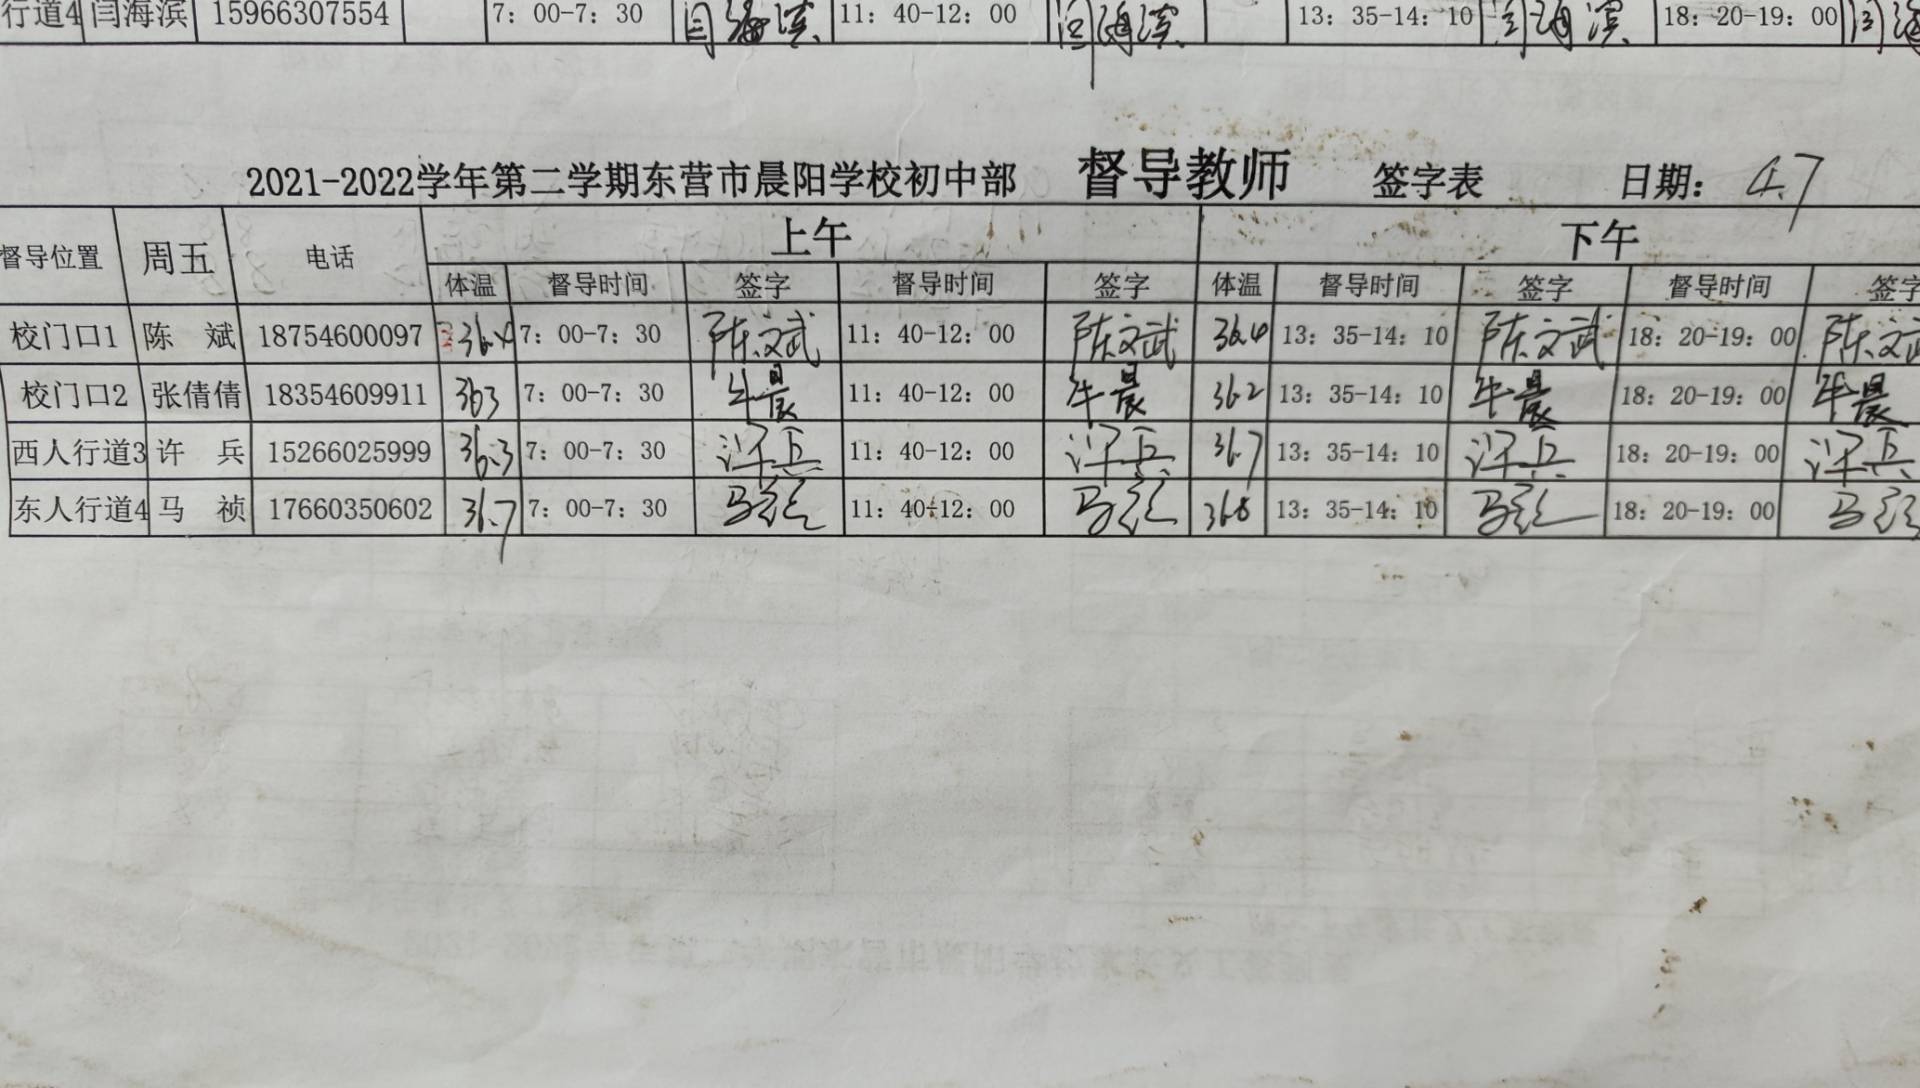 行道4 闫海滨 15966307554 7：00-7：30 闫海滨 11：40-12：00 闫海滨 13：35-14：10 闫海滨 18：20-19：00 闫海
2021-2022学年第二学期东营市晨阳学校初中部 督导教师 签字表 日期：4.7
督导位置 周五 电话 上午 下午
体温 督导时间 签字 督导时间 签字 体温 督导时间 签字 督导时间 签字
校门口1 陈 斌 18754600097 36.4 7：00-7：30 陈文武 11：40-12：00 陈文武 36.4 13：35-14：10 陈文武 18：20-19：00 陈文武
校门口2 张倩倩 18354609911 363 7：00-7：30 牛晨 11：40-12：00 牛晨 36.2 13：35-14：10 牛晨 18：20-19：00 牛晨
西人行道3 许 兵 15266025999 36.3 7：00-7：30 许兵 11：40-12：00 许兵 36.7 13：35-14：10 许兵 18：20-19：00 许兵
东人行道4 马 祯 17660350602 36.7 7：00-7：30 11：40-12：00 36.8 13：35-14：10 18：20-19：00